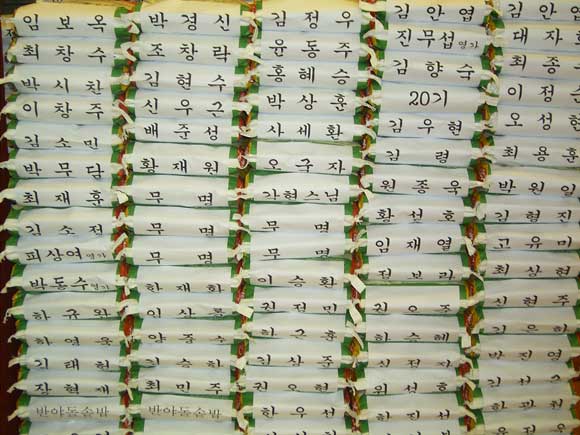 임보옥
최창수
박시찬
이창주
김소민
박무담
최재훈
김소정
피상여 영가
박동수 영가
하영욱
김태현
장현재
반야돌솥밥
박경신
조창락
김현수
신우근
배준성
황재원
무명
무명
무명
하재화
양준수
김승하
최민주
반야돌솥밥
김정우
윤동주
홍혜승
박상훈
사세환
오국자
각현스님
무명
무명
이승환
권정민
하근훈
김상준
권오현
하우성
김안엽
진무섭 영가
김향수
20기
김우현
김령
원종욱
황선호
임재열
전보리
권오주
하승혜
신정자
위성호
하진성
김안
대자
최종
이정
오성현
최용훈
박원임
김현진
고유미
최상현
신현주
김유희
박진영